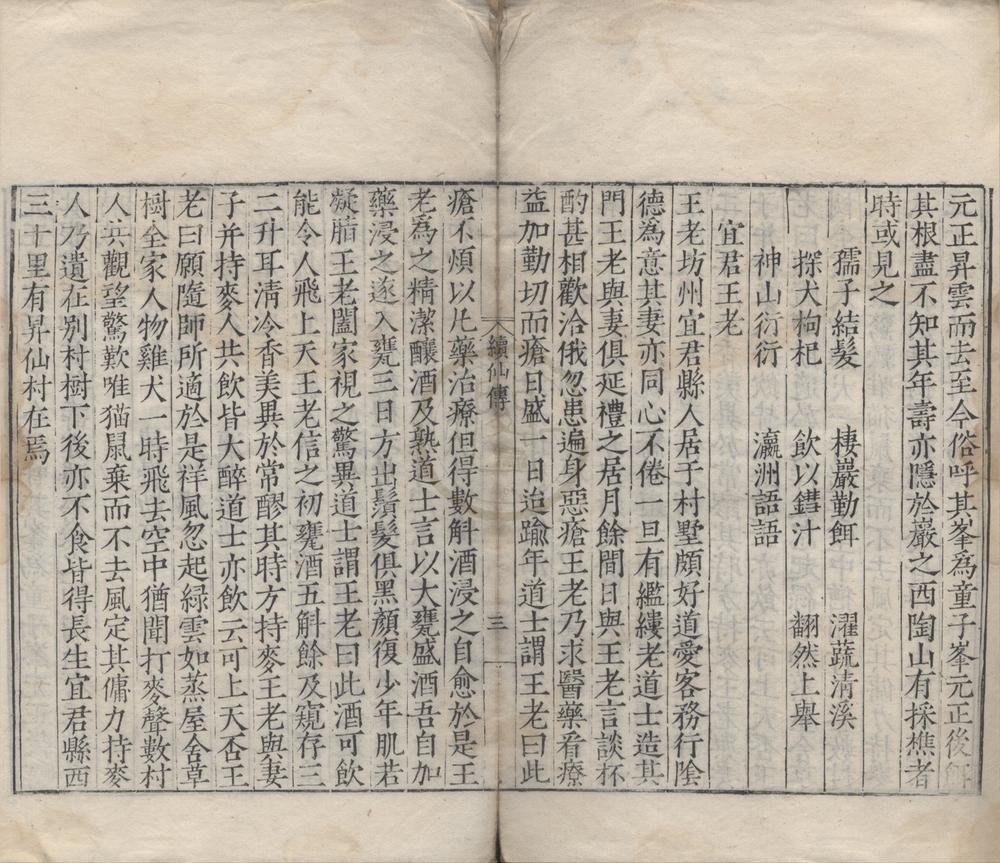 元正昇雲而去至今俗呼其峯爲童子峯元正後餌
其根盡不知其年壽亦隱於巖之西陶山有採樵者
時或見之
孺子結髮　棲巖勤餌　濯蔬清溪
探犬枸杞　飲以鐟汁　翻然上舉
神山衍衍　瀛洲語語
宜君王老
王老坊州宜君縣人居于村墅頗好道愛客務行陰
德爲意其妻亦同心不倦一旦有繿縷老道士造其
門王老與妻俱延禮之居月餘間日與王老言談杯
酌甚相歡洽俄忽患遍身惡瘡王老乃求醫藥看療
益加勤切而瘡日盛一日迨踰年道士謂王老曰此
續仙傳　三
瘡不煩以凡藥治療但得數斛酒浸之自愈於是王
老爲之精潔釀酒及熟道士言以大甕盛酒吾自加
藥浸之遂入甕三日方出鬚髮俱黑顏復少年肌若
凝脂王老闔家視之驚異道士謂王老曰此酒可飲
能令人飛上天王老信之初甕酒五斛餘及窺存三
二升耳清冷香美異於常醪其時方持麥王老與妻
子并持麥人共飲皆大醉道士亦飲云可上天否王
老曰願隨師所適於是祥風忽起綠雲如蒸屋舍草
樹全家人物雞犬一時飛去空中猶聞打麥聲數村
人共觀望驚歎唯猫鼠棄而不去風定其傭力持麥
人乃遺在別村樹下後亦不食皆得長生宜君縣西
三十里有昇仙村在焉